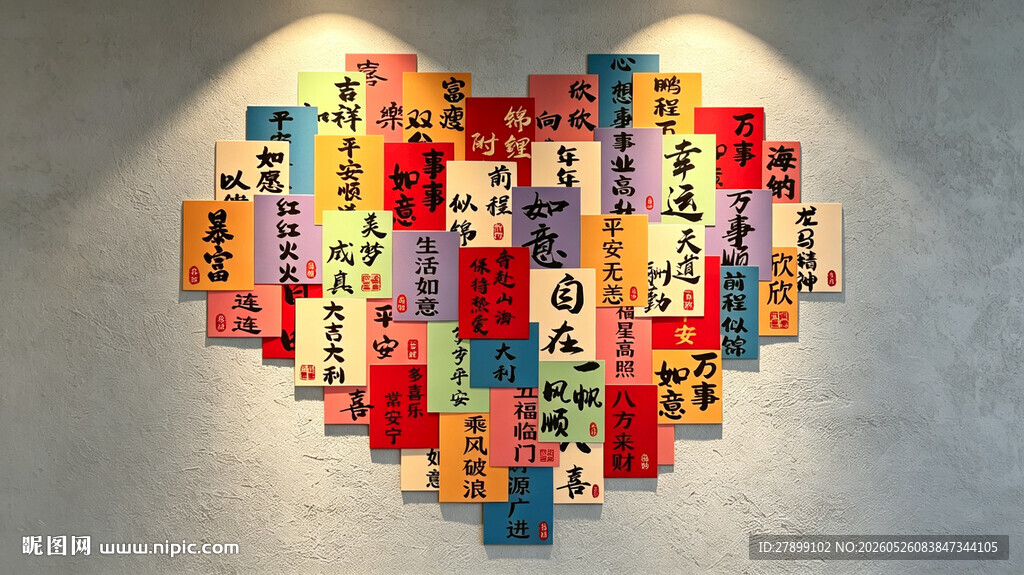 喜
樂
吉祥
富
瘦
欣欣
向
心想事
鹏程
平
锦鲤
附
万事
海纳
如愿
以
平安顺
事事
如意
前程
似锦
年年
事业高升
幸运
万事顺
龙马精神
暴富
红红火火
美梦
成真
生活如意
奔赴山海
保持热爱
如意
平安无恙
天道
酬勤
前程似锦
欣欣
连连
大吉大利
平安
自在
福星高照
安
大利
岁岁平安
一帆
风顺
万事
如意
喜
多喜乐
常安宁
五福临门
八方来财
如意
乘风破浪
喜
财源广进
昵图网 www.nipic.com
ID:27899102 NO:20260526083847344105